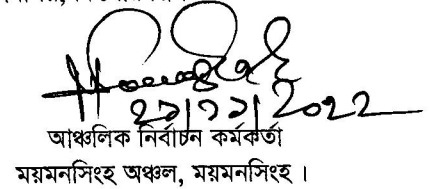 ২৯/১১/2022
আঞ্চলিক নির্বাচন কর্মকর্তা
ময়মনসিংহ অঞ্চল, ময়মনসিংহ ।